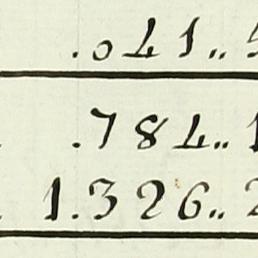 .041..
.784..1
1.326..2